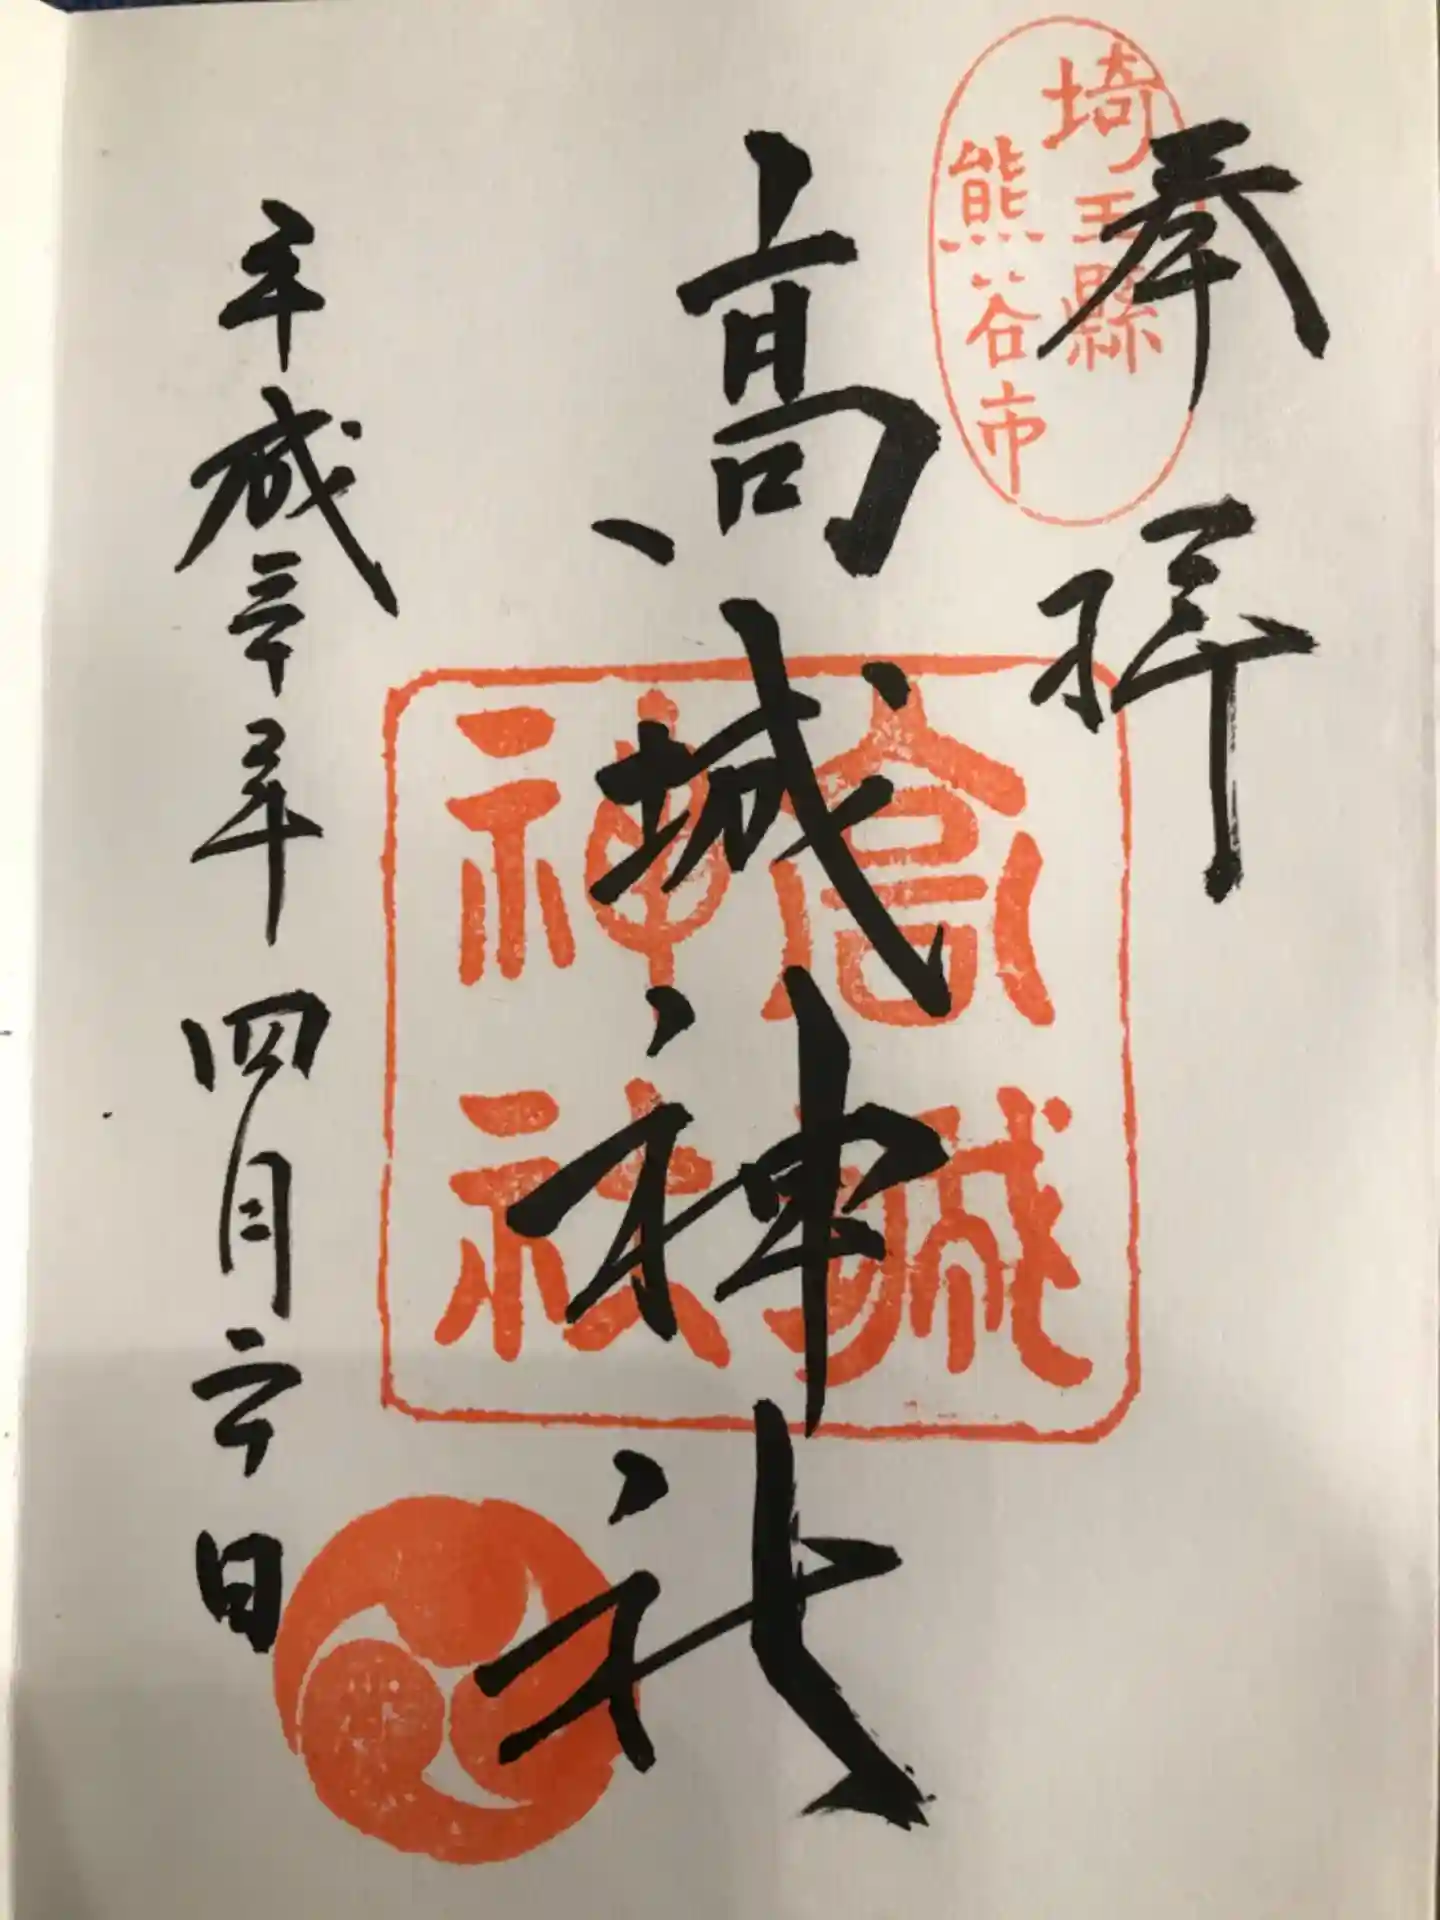 奉拝
埼玉縣
熊谷市
高城神社
高城
神社
平成三十年四月二十日